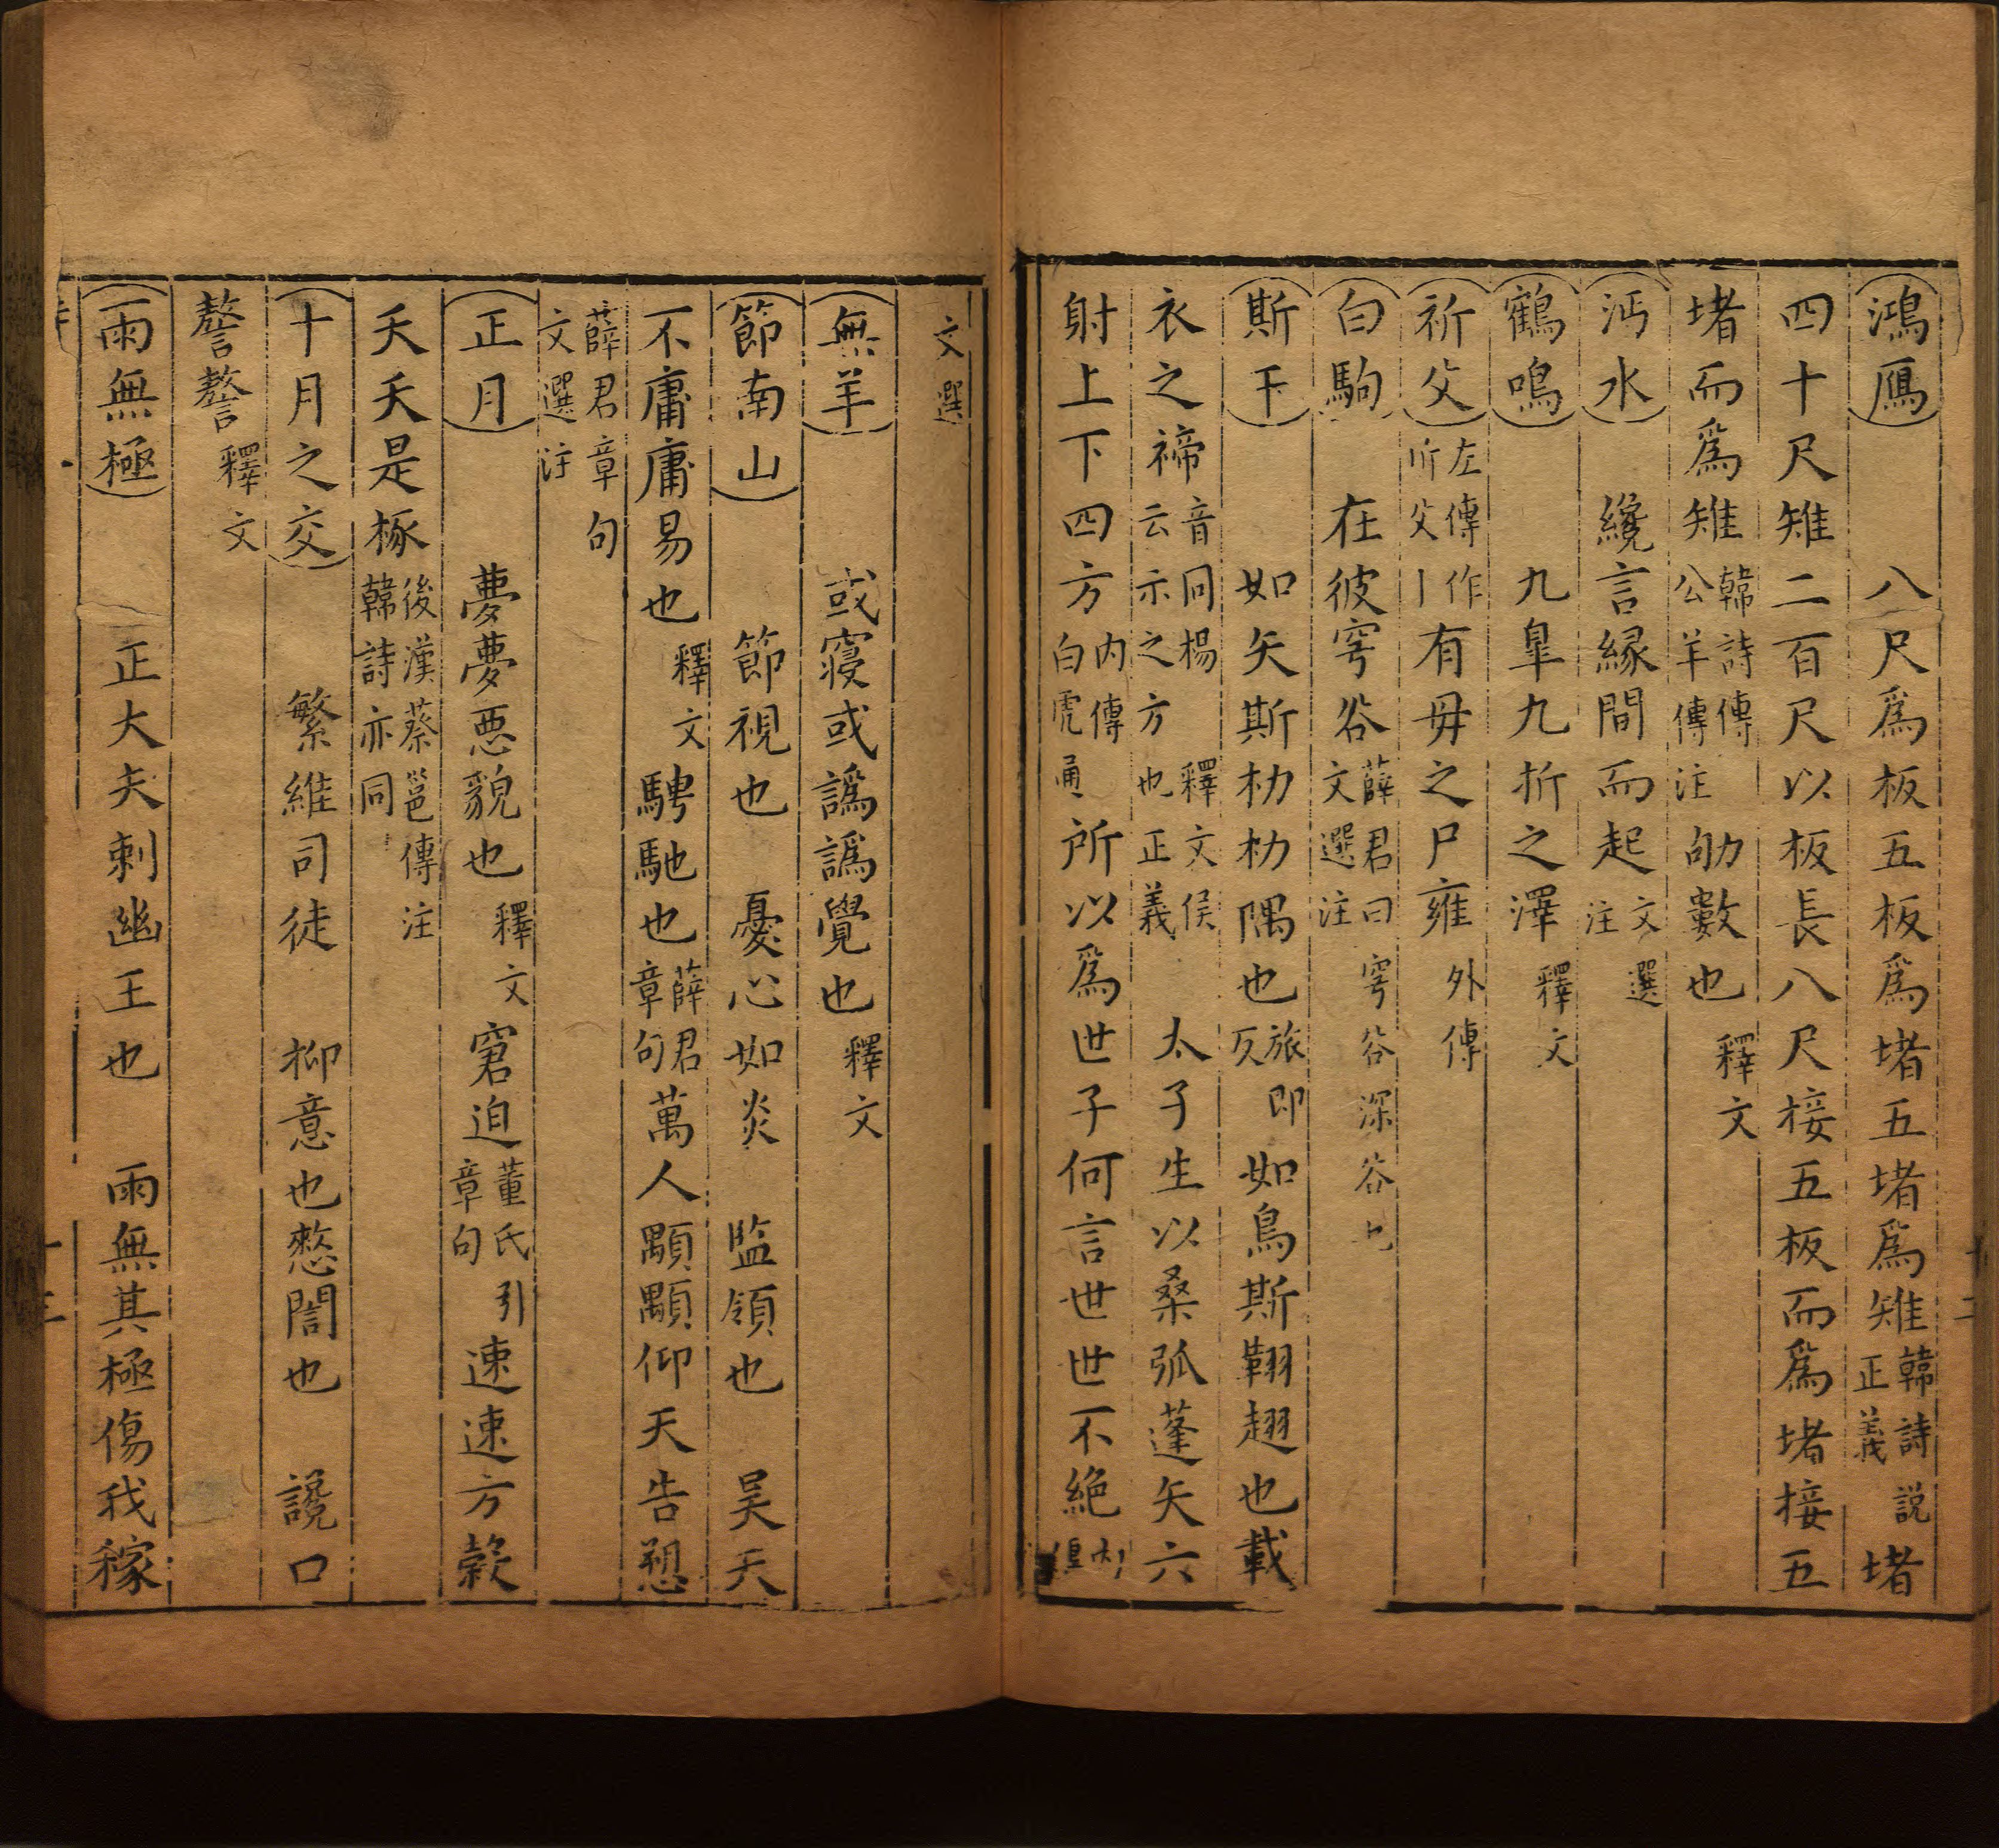 鴻鴈 八尺爲板五板爲堵五堵爲雉韓詩說正義堵
四十尺雉二百尺以板長八尺接五板而爲堵接五
堵而爲雉韓詩傳公羊傳注 劬數也釋文
沔水 纔言緣間而起文選注
鶴鳴 九臯九折之澤釋文
祈父左傳作圻父 有毋之尸雍外傳
白駒 在彼穹谷薛君曰穹谷深谷也文選注
斯干 如矢斯朸朸隅也旅即反 如鳥斯翶翅也載
衣之褅音同楊云示之方也釋文侯正義 太子生以桑弧蓬矢六
射上下四方內傳白虎通所以爲世子何言世世不絕
文選
無羊 或寢或譌譌覺也釋文
節南山 節視也 憂心如炎 監領也 吴天
不庸庸易也釋文騁馳也薛君章句萬人顒顒仰天告愬
薛君章句文選注
正月 夢夢惡貌也釋文窘迫董氏引章句速速方榖
夭夭是椓後漢蔡邕傳注韓詩亦同
十月之交 繁維司徒 抑意也憖誾也 讒口
謷謷釋文
雨無極 正大夫刺幽王也 雨無其極傷我稼